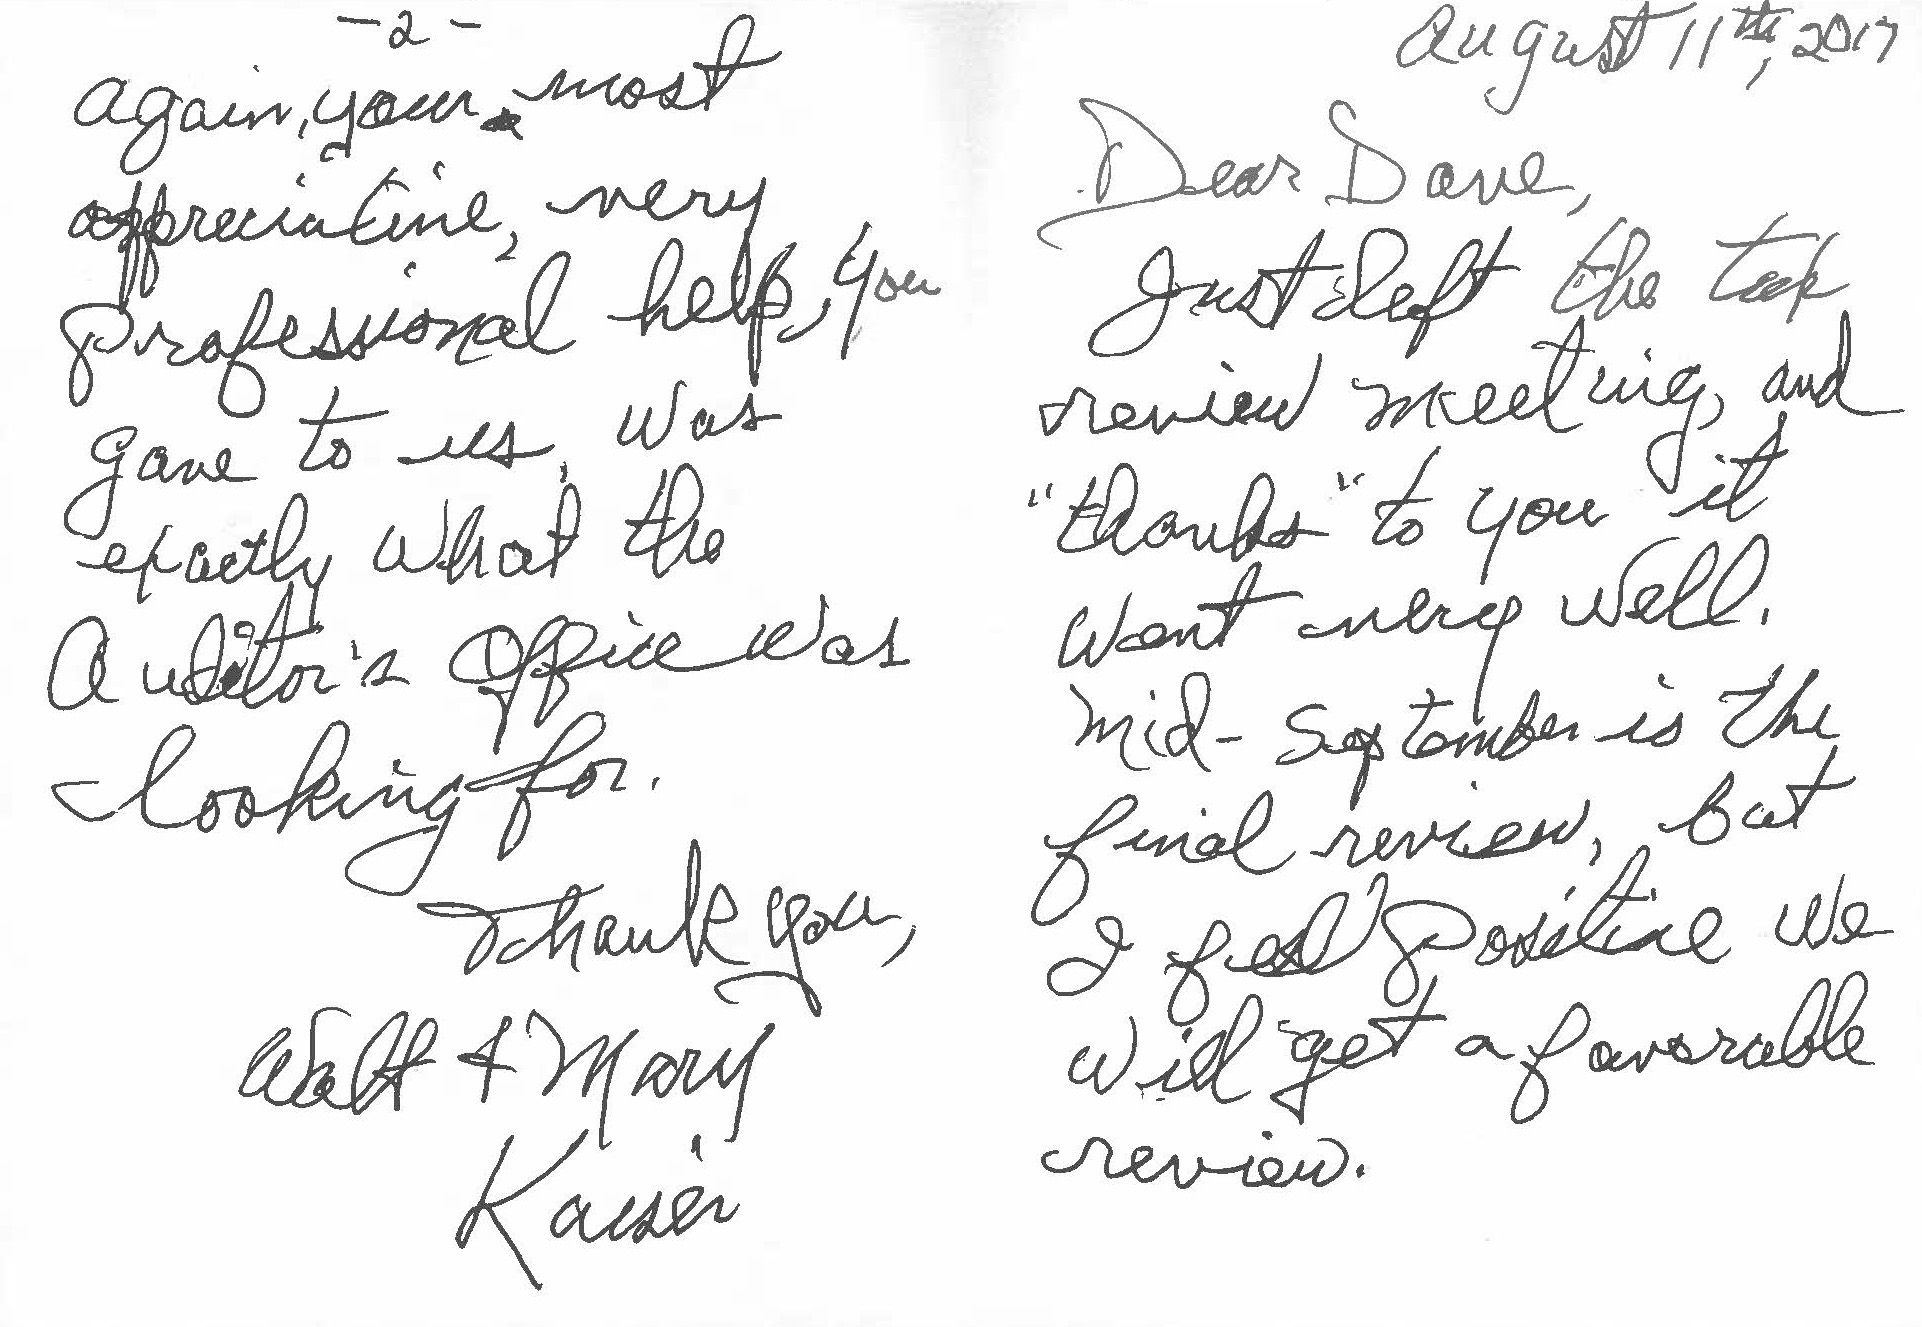 August 11th, 2017
Dear Dave,
Just left the tax
review meeting, and
"thanks" to you it
went very well.
Mid-September is the
final review, but
I feel positive we
will get a favorable
review.
-2-
again, your most
appreciative, very
professional help, you
gave to us, was
exactly what the
Auditor's Office was
looking for.
Thank you,
Walt & Mary
Kaiser